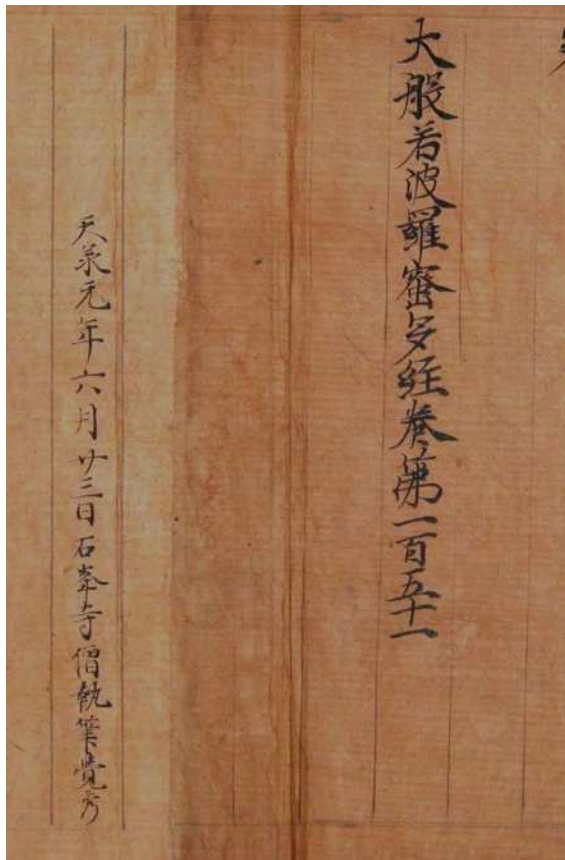 大般若波羅蜜多経巻第一百五十一
天承元年六月廿三日石峯寺僧執筆覚秀